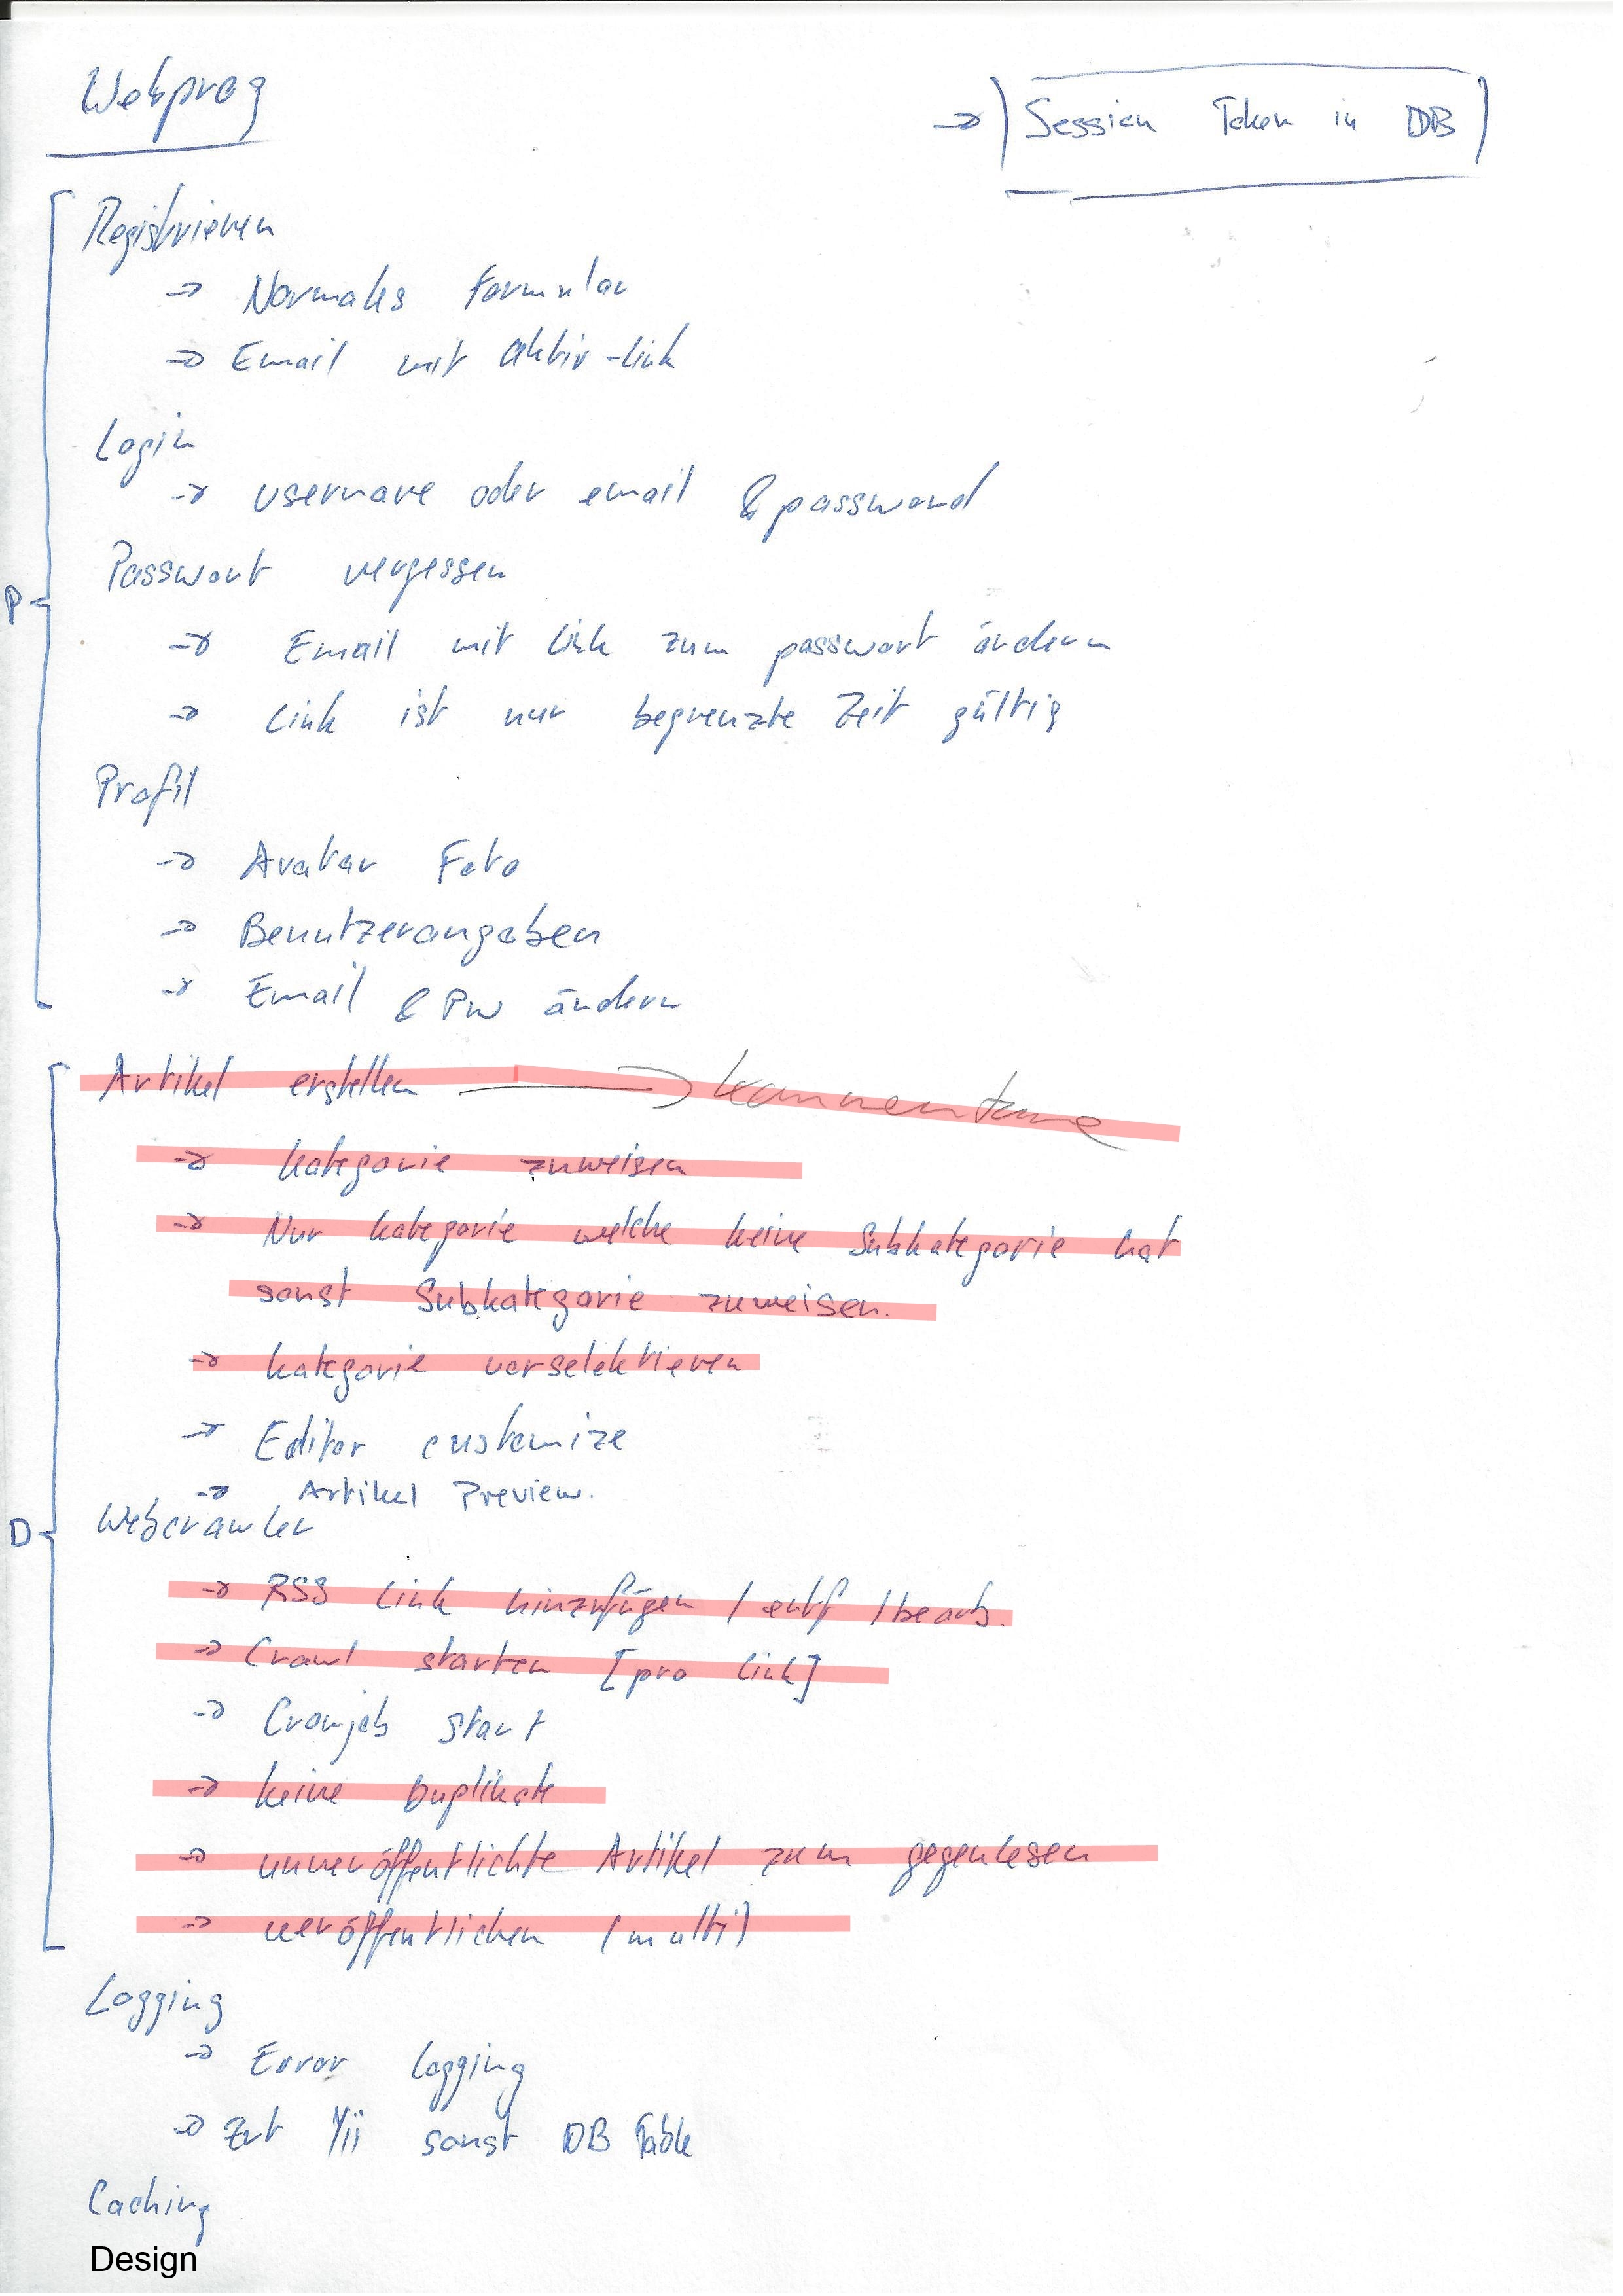 Webprog
→ | Session Token in DB |
Registrieren
→ Normales Formular
→ Email mit Aktiv-Link
Login
→ username oder email & password
Passwort vergessen
→ Email mit Link zum passwort ändern
→ Link ist nur begrenzte Zeit gültig
P
Profil
→ Avatar Foto
→ Benutzerangaben
→ Email & PW ändern
Artikel erstellen → Kommentare
→ Kategorie zuweisen
→ Nur Kategorie welche keine Subkategorie hat
sonst Subkategorie zuweisen.
→ Kategorie vorselektieren
→ Editor customize
→ Artikel Preview.
D
Webcrawler
→ RSS Link hinzufügen / entf / bearb.
→ Crawl starten [pro Link]
→ Cronjob start
→ keine Duplikate
→ unveröffentlichte Artikel zum gegenlesen
→ veröffentlichen (multi)
Logging
→ Error logging
→ Yii sonst DB Table
Caching
Design